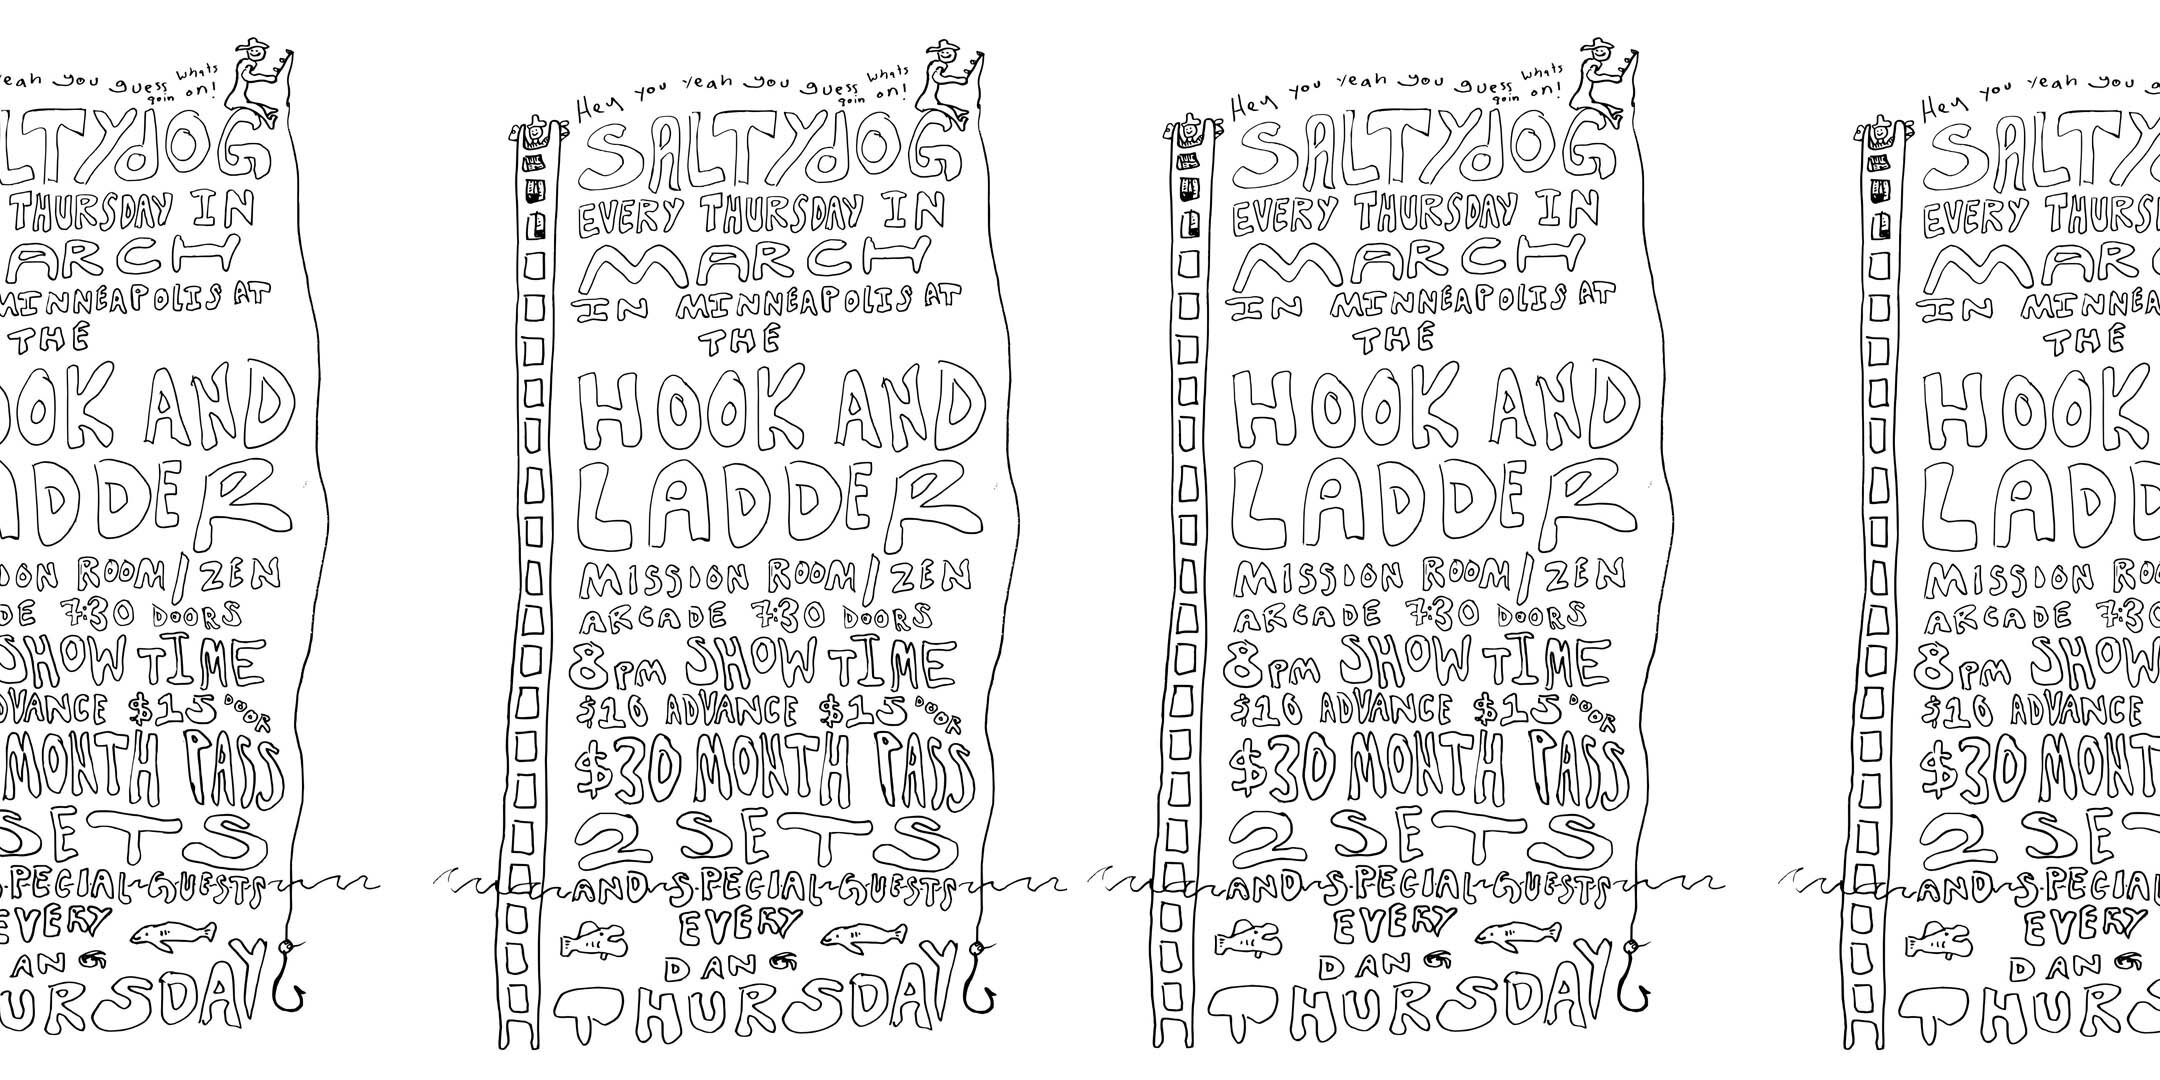 eah you guess whats goin on!
LTYdOG
THURSDAY IN
ARCH
MINNEAPOLIS AT
THE
OOK AND
ADDER
ION ROOM/ZEN
DE 7:30 DOORS
SHOW TIME
DVANCE $15 DOOR
MONTH PASS
SETS
SPECIAL GUESTS
EVERY
ANG
URSDAY
Hey you yeah you guess whats goin on!
SALTYdOG
EVERY THURSDAY IN
MARCH
IN MINNEAPOLIS AT
THE
HOOK AND
LADDER
MISSION ROOM/ZEN
ARCADE 7:30 DOORS
8PM SHOW TIME
$10 ADVANCE $15 DOOR
$30 MONTH PASS
2 SETS
AND SPECIAL GUESTS
EVERY
DANG
THURSDAY
Hey you yeah you guess whats goin on!
SALTYdOG
EVERY THURSDAY IN
MARCH
IN MINNEAPOLIS AT
THE
HOOK AND
LADDER
MISSION ROOM/ZEN
ARCADE 7:30 DOORS
8PM SHOW TIME
$10 ADVANCE $15 DOOR
$30 MONTH PASS
2 SETS
AND SPECIAL GUESTS
EVERY
DANG
THURSDAY
Hey you yeah you g
SALTY
EVERY THURS
MAR
IN MINNEA
THE
HOOK
LADD
MISSION ROO
ARCADE 7:30
8PM SHOW
$10 ADVANCE
$30 MONT
2 SET
AND SPECIAL
EVERY
DANG
THURS